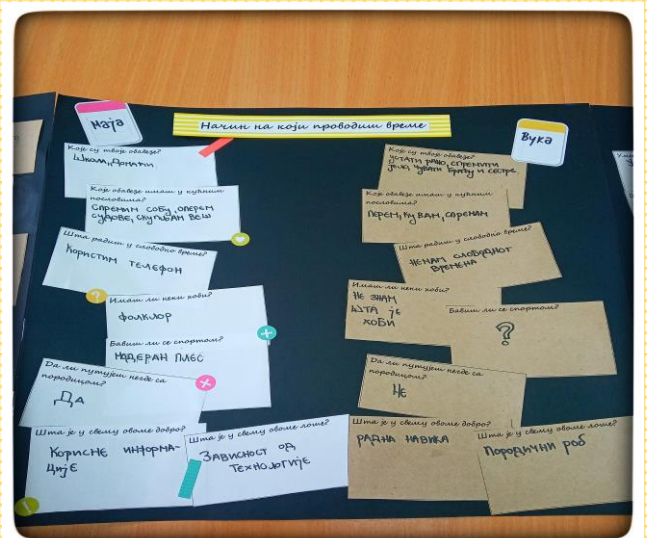 Маја
Начин на који проводиш време
Вука
Које су твоје обавезе?
Школа, домаћи
Које обавезе имаш у кућним
пословима?
Спремим собу, оперем
судове, скупљам веш
Шта радиш у слободно време?
Користим телефон
Имаш ли неки хоби?
фолклор
Бавиш ли се спортом?
модеран плес
Да ли путујеш негде са
породицом?
Да
Шта је у свему овоме добро?
Корисне информа-
ције
Шта је у свему овоме лоше?
Зависност од
технологије
Које су твоје обавезе?
устати рано, спремити
јело, чувати браћу и сестре
Које обавезе имаш у кућним
пословима?
перем, кувам, спремам
Шта радиш у слободно време?
немам слободног
времена
Имаш ли неки хоби?
Не знам
шта је
хоби
Бавиш ли се спортом?
?
Да ли путујеш негде са
породицом?
Не
Шта је у свему овоме добро?
радна навика
Шта је у свему овоме лоше?
Породични роб